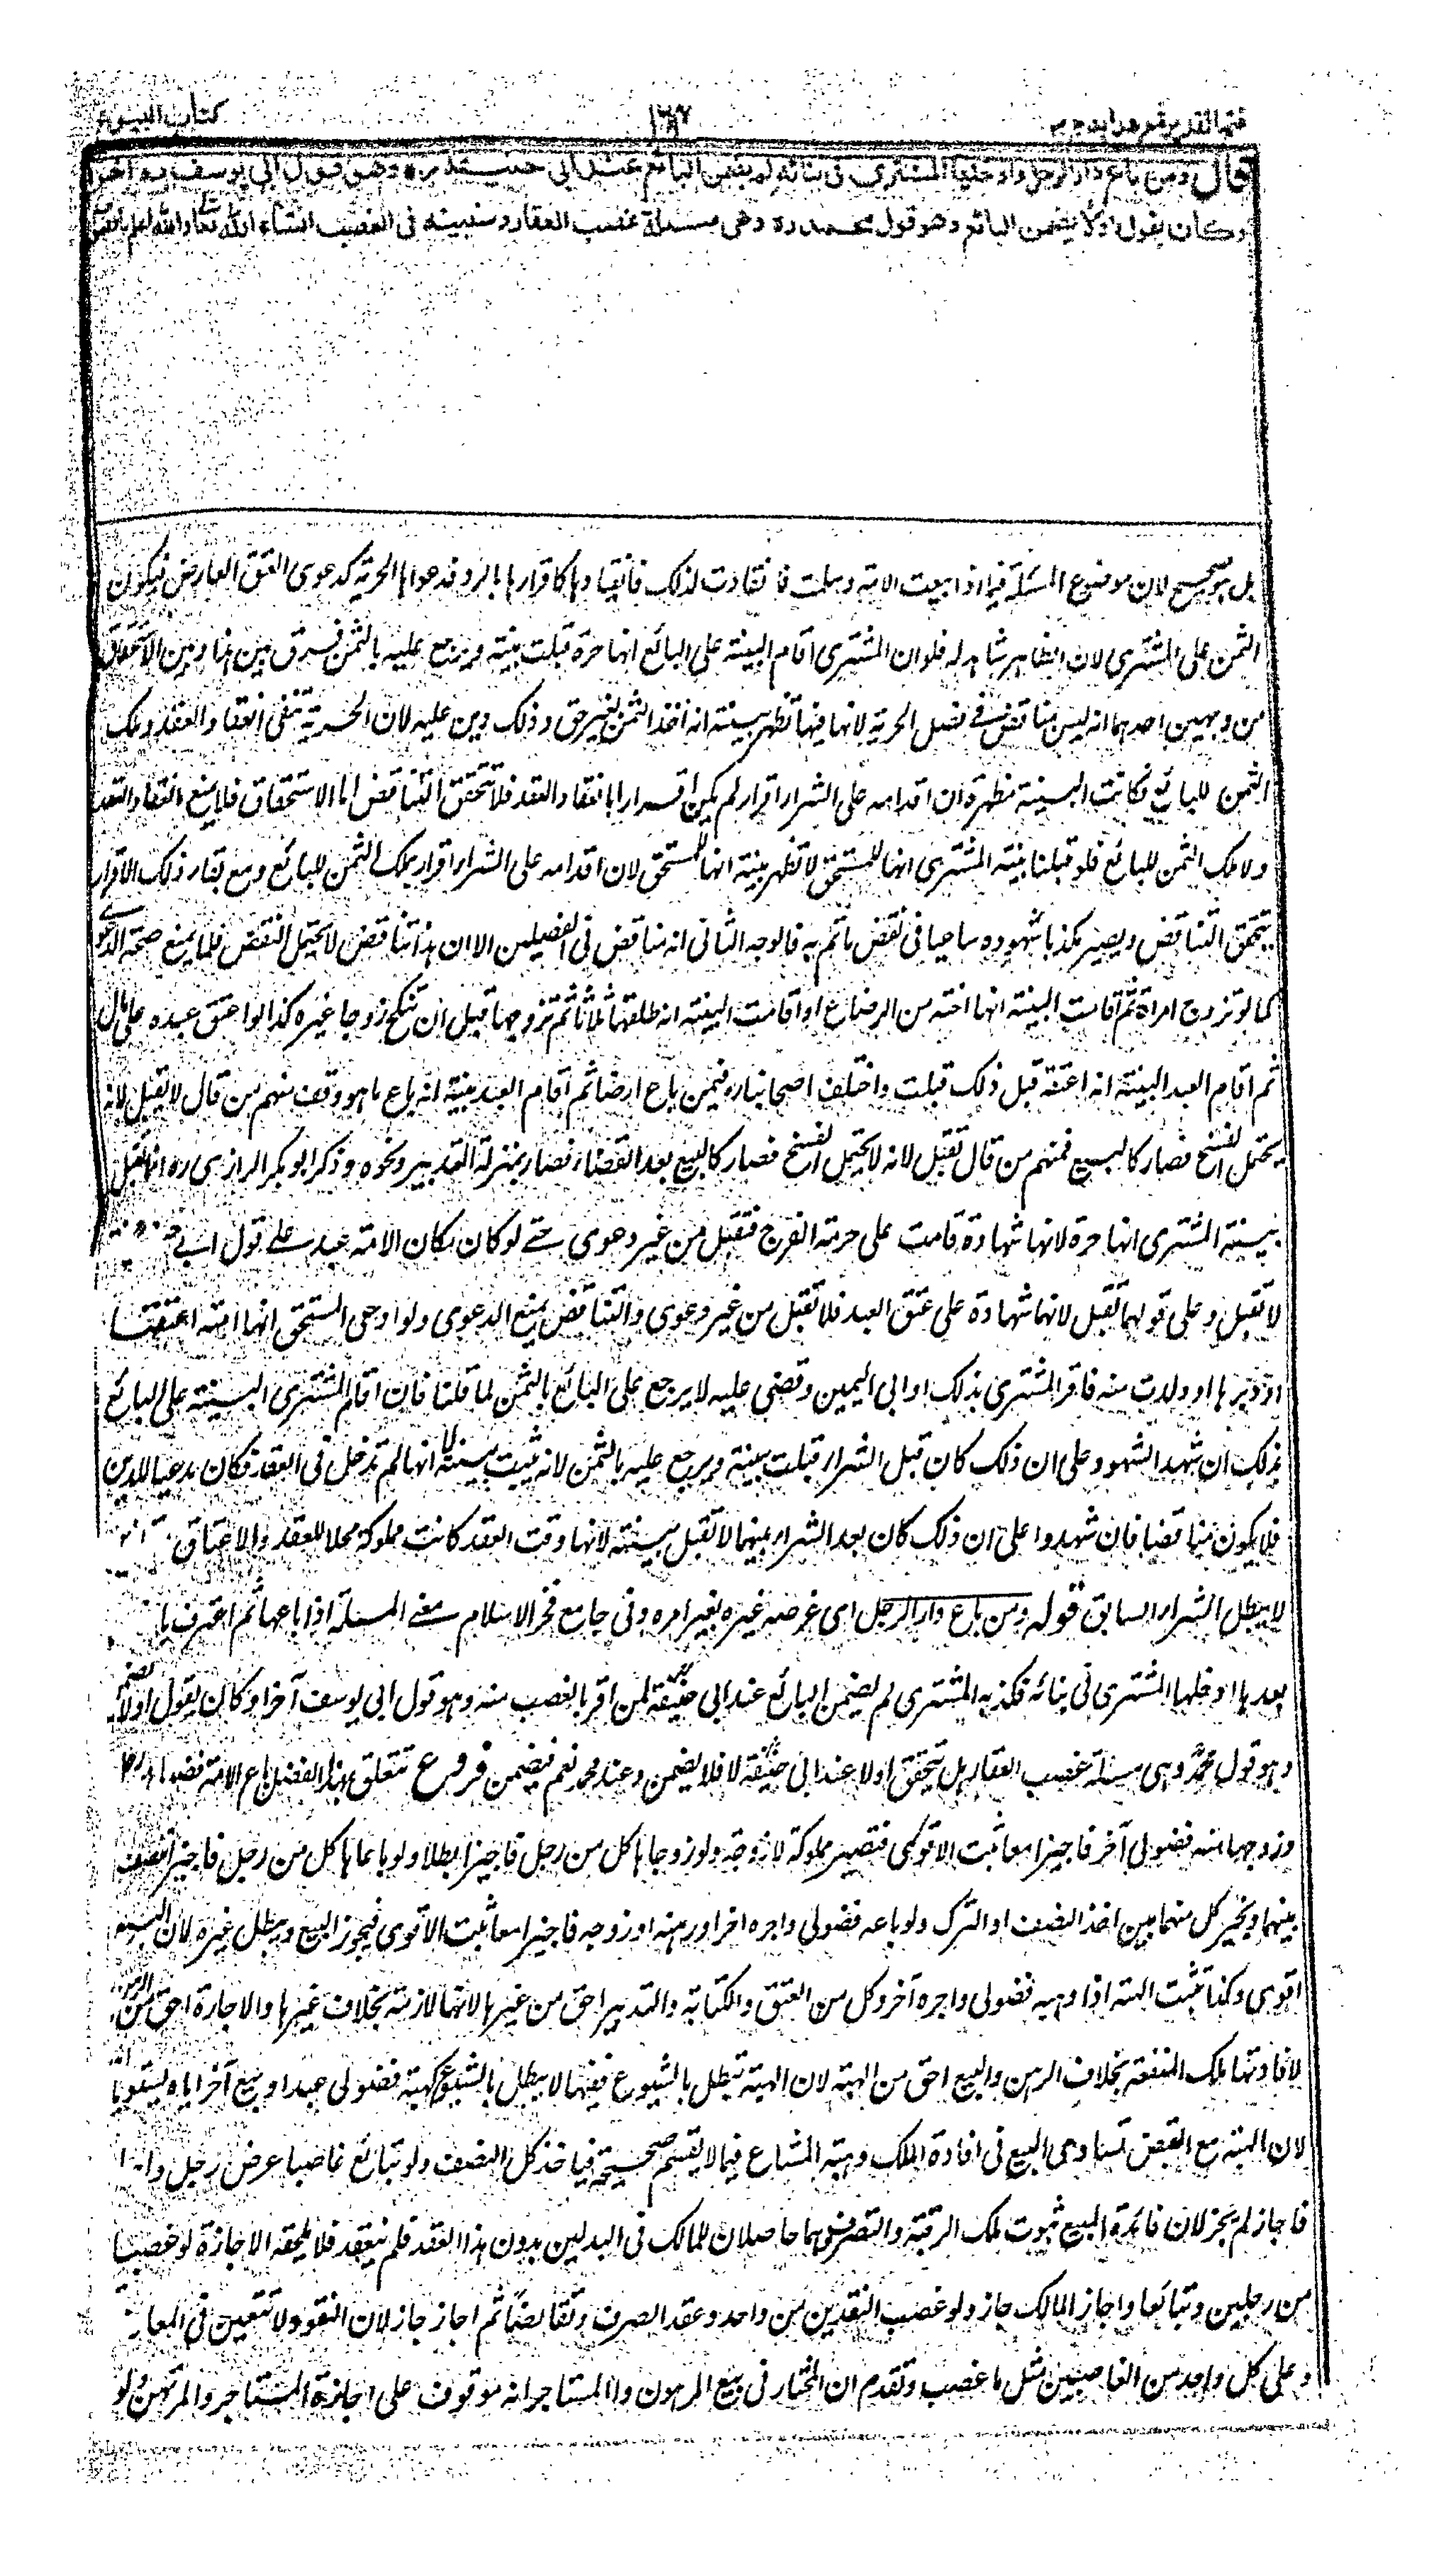 فتح القدير مع هدايه ج ٣
١٦٧
كتاب البيوع
قال ومن باع دار الرجل وادخلها المشتري في بنائه لم يضمن البائع عند ابي حنيفة ره وهو قول ابي يوسف ره اخرا
وكان يقول اولا يضمن البائع وهو قول محمد ره وهي مسئلة غصب العقار وسنبينه في الغصب انشاء الله تعالى والله اعلم
بل هو صحيح لان موضوع المسئلة فيما اذا بيعت الامة وسلمت فانقادت لذلك فانقيادها كاقرارها بالرق فدعواها الحرية كدعوى العتق العارض فيكون
الثمن على المشتري لان الظاهر شاهد له فلو ان المشتري اقام البينة على البائع انها حرة قبلت بينته ويرجع عليه بالثمن فرق بين هذا وبين الاستحقاق
من وجهين احدهما انه ليس مناقض في فصل الحرية لانها فيها تظهر ببينته انه اخذ الثمن بغير حق وذلك دين عليه لان الحرية تنفي انعقاد العقد وملك
الثمن للبائع فكانت البينة مظهرة ان اقدامه على الشراء اقرار لم يكن اقرارا بانعقاد العقد فلا تحقق التناقض اما الاستحقاق فلا يمنع انعقاد العقد
ولا ملك الثمن للبائع فلو قبلنا بينة المشتري انها للمستحق لا تظهر بينة انها للمستحق لان اقدامه على الشراء اقرار بملك الثمن للبائع ومع بقاء ذلك الاقرار
يتحقق التناقض ويصير مكذبا شهوده ساعيا في نقض ما تم به فالوجه الثاني انه مناقض في الفصلين الا ان هذا تناقض لا يحتمل النقض فلا يمنع صحة الدعوى
كما لو تزوج امراة ثم اقامت البينة انها اخته من الرضاع او اقامت البينة انه طلقها ثلاثا ثم تزوجها قبل ان تنكح زوجا غيره كذا لو اعتق عبده على مال
ثم اقام العبد البينة انه اعتقه قبل ذلك قبلت واختلف اصحابنا ره فيمن باع ارضا ثم اقام العبد بينة انه باع ما هو وقف منهم من قال لا يقبل لانه
يحتمل الفسخ فصار كالبيع فمنهم من قال تقبل لانه لا يحتمل الفسخ فصار كالبيع بعد القضاء فصار بمنزلة التدبير ونحوه وذكر ابو بكر الرازي ره انها تقبل
بينة المشتري انها حرة لانها شهادة قامت على حرمة الفرج فتقبل من غير دعوى حتى لو كان مكان الامة عبد على قول ابي
لا تقبل وعلى قولهما تقبل لانها شهادة على عتق العبد فلا تقبل من غير دعوى والتناقض يمنع الدعوى ولو ادعى المستحق انها امته اعتقها
او دبرها او ولدت منه فاقر المشتري بذلك او ابى اليمين وقضي عليه لا يرجع على البائع بالثمن لما قلنا فان اقام المشتري البينة على البائع
بذلك ان شهد الشهود على ان ذلك كان قبل الشراء قبلت بينة ويرجع عليه بالثمن لانه يثبت ببينته انها لم تدخل في العقد فكان مدعيا للدين
فلا يكون مناقضا فان شهدوا على ان ذلك كان بعد الشراء بينهما لا تقبل ببينته لانها وقت العقد كانت مملوكة محلا للعقد والاعتاق
لا يبطل الشراء السابق قوله ومن باع دار الرجل اي عرصة غيره بغير امره وفي جامع فخر الاسلام معنى المسئلة اذا باعها ثم اعترف با
بعدها ادخلها المشتري في بنائه فكذبه المشتري لم يضمن البائع عند ابي حنيفة لمن اقر بالغصب منه وهو قول ابي يوسف آخرا وكان يقول اولا يضمن
وهو قول محمد وهي مسئلة غصب العقار هل يتحقق او لا عند ابي حنيفة لا فلا يضمن وعند محمد نعم فيضمن فروع تتعلق بهذا الفصل باع الامة فضولي
وزوجها منه فضولي آخر فاجيزا معا ثبت الاقوى فتصير مملوكة لا زوجة ولو زوجاها كل من رجل فاجيزا بطلا ولو باعاها كل من رجل فاجيزا تنصف
بينهما ويخير كل منهما بين اخذ النصف او الترك ولو باعه فضولي واجره اخر او رهنه او زوجه فاجيزا معا ثبت الاقوى فيجوز البيع ويبطل غيره لان البيع
اقوى وكذا تثبت الهبة اذا وهبه فضولي واجره آخر وكل من العتق والكتابة والتدبير احق من غيرها لانها لازمة بخلاف غيرها والاجارة احق من الرهن
لافادتها ملك المنفعة بخلاف الرهن والبيع احق من الهبة لان الهبة تبطل بالشيوع ففيما لا يبطل بالشيوع كهبة فضولي عبدا وبيع آخر اياه يستويان
لان الهبة مع القبض تساوي البيع في افادة الملك وهبة المشاع فيما لا يقسم صحيحة فياخذ كل النصف ولو تبايع غاصبا عرض رجل واحد
فاجاز لم يجز لان فائدة البيع ثبوت ملك الرقبة والتصرف وهما حاصلان للمالك في البدلين بدون هذا العقد فلم ينعقد فلا يلحقه الاجازة لو غصبا
من رجلين وتبائعا واجاز المالك جاز ولو غصب النقدين من واحد وعقد الصرف وتقابضا ثم اجاز جاز لان النقود لا تتعين في المعا
وعلى كل واحد من الغاصبين مثل ما غصب وتقدم ان المختار في بيع المرهون والمستاجر انه موقوف على اجازة المستاجر والمرتهن ولو